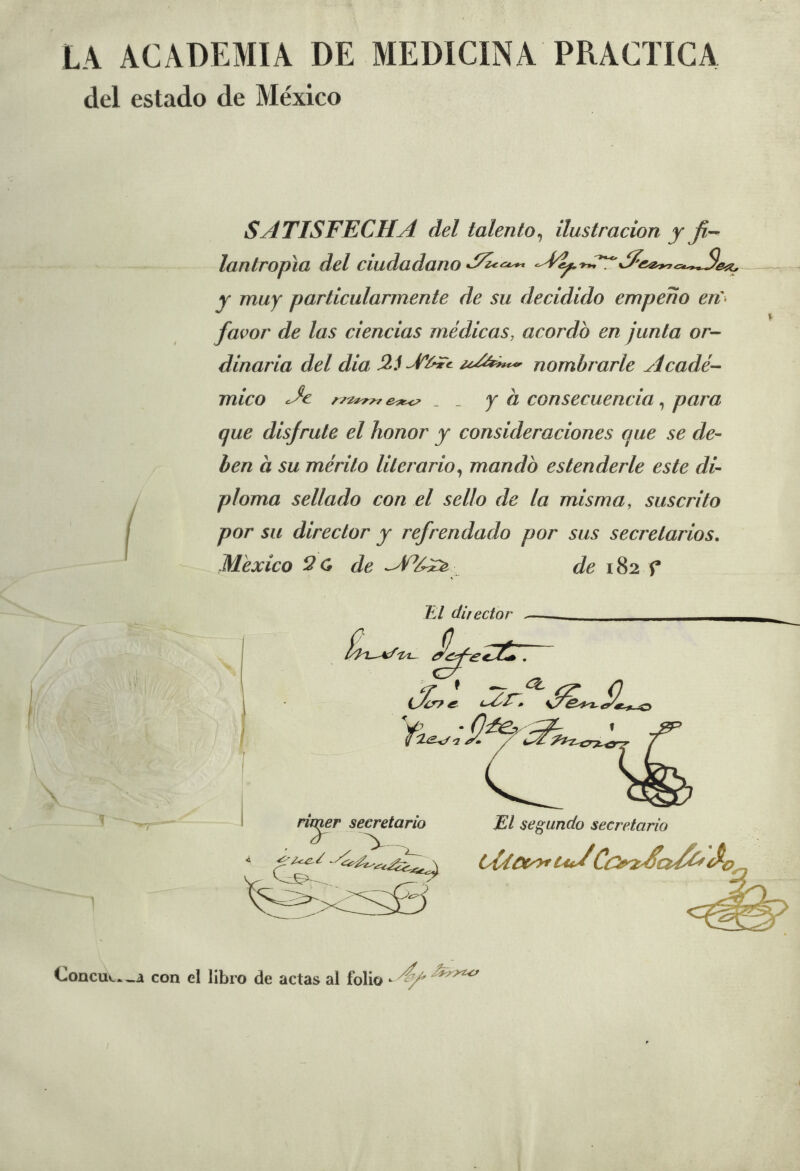 LA ACADEMIA DE MEDICINA PRACTICA
del estado de México
SATISFECHA del talento, ilustracion y fi-
lantropìa del ciudadano Juan Nepm.no Fernandez
y muy particularmente de su decidido empeño en
favor de las ciencias médicas, acordò en junta or-
dinaria del dia 25 Nbre ultimo nombrarle Acadé-
mico de numero _ _ y à consecuencia, para
que disfrute el honor y consideraciones que se de-
ben à su mérito literario, mandò estenderle este di-
ploma sellado con el sello de la misma, suscrito
por su director y refrendado por sus secretarios.
Mèxico 26 de Nbre de 182
El director
defecto.
José
Preside
rimer secretario El segundo secretario
Manuel Carballido
con el libro de actas al folio septimo